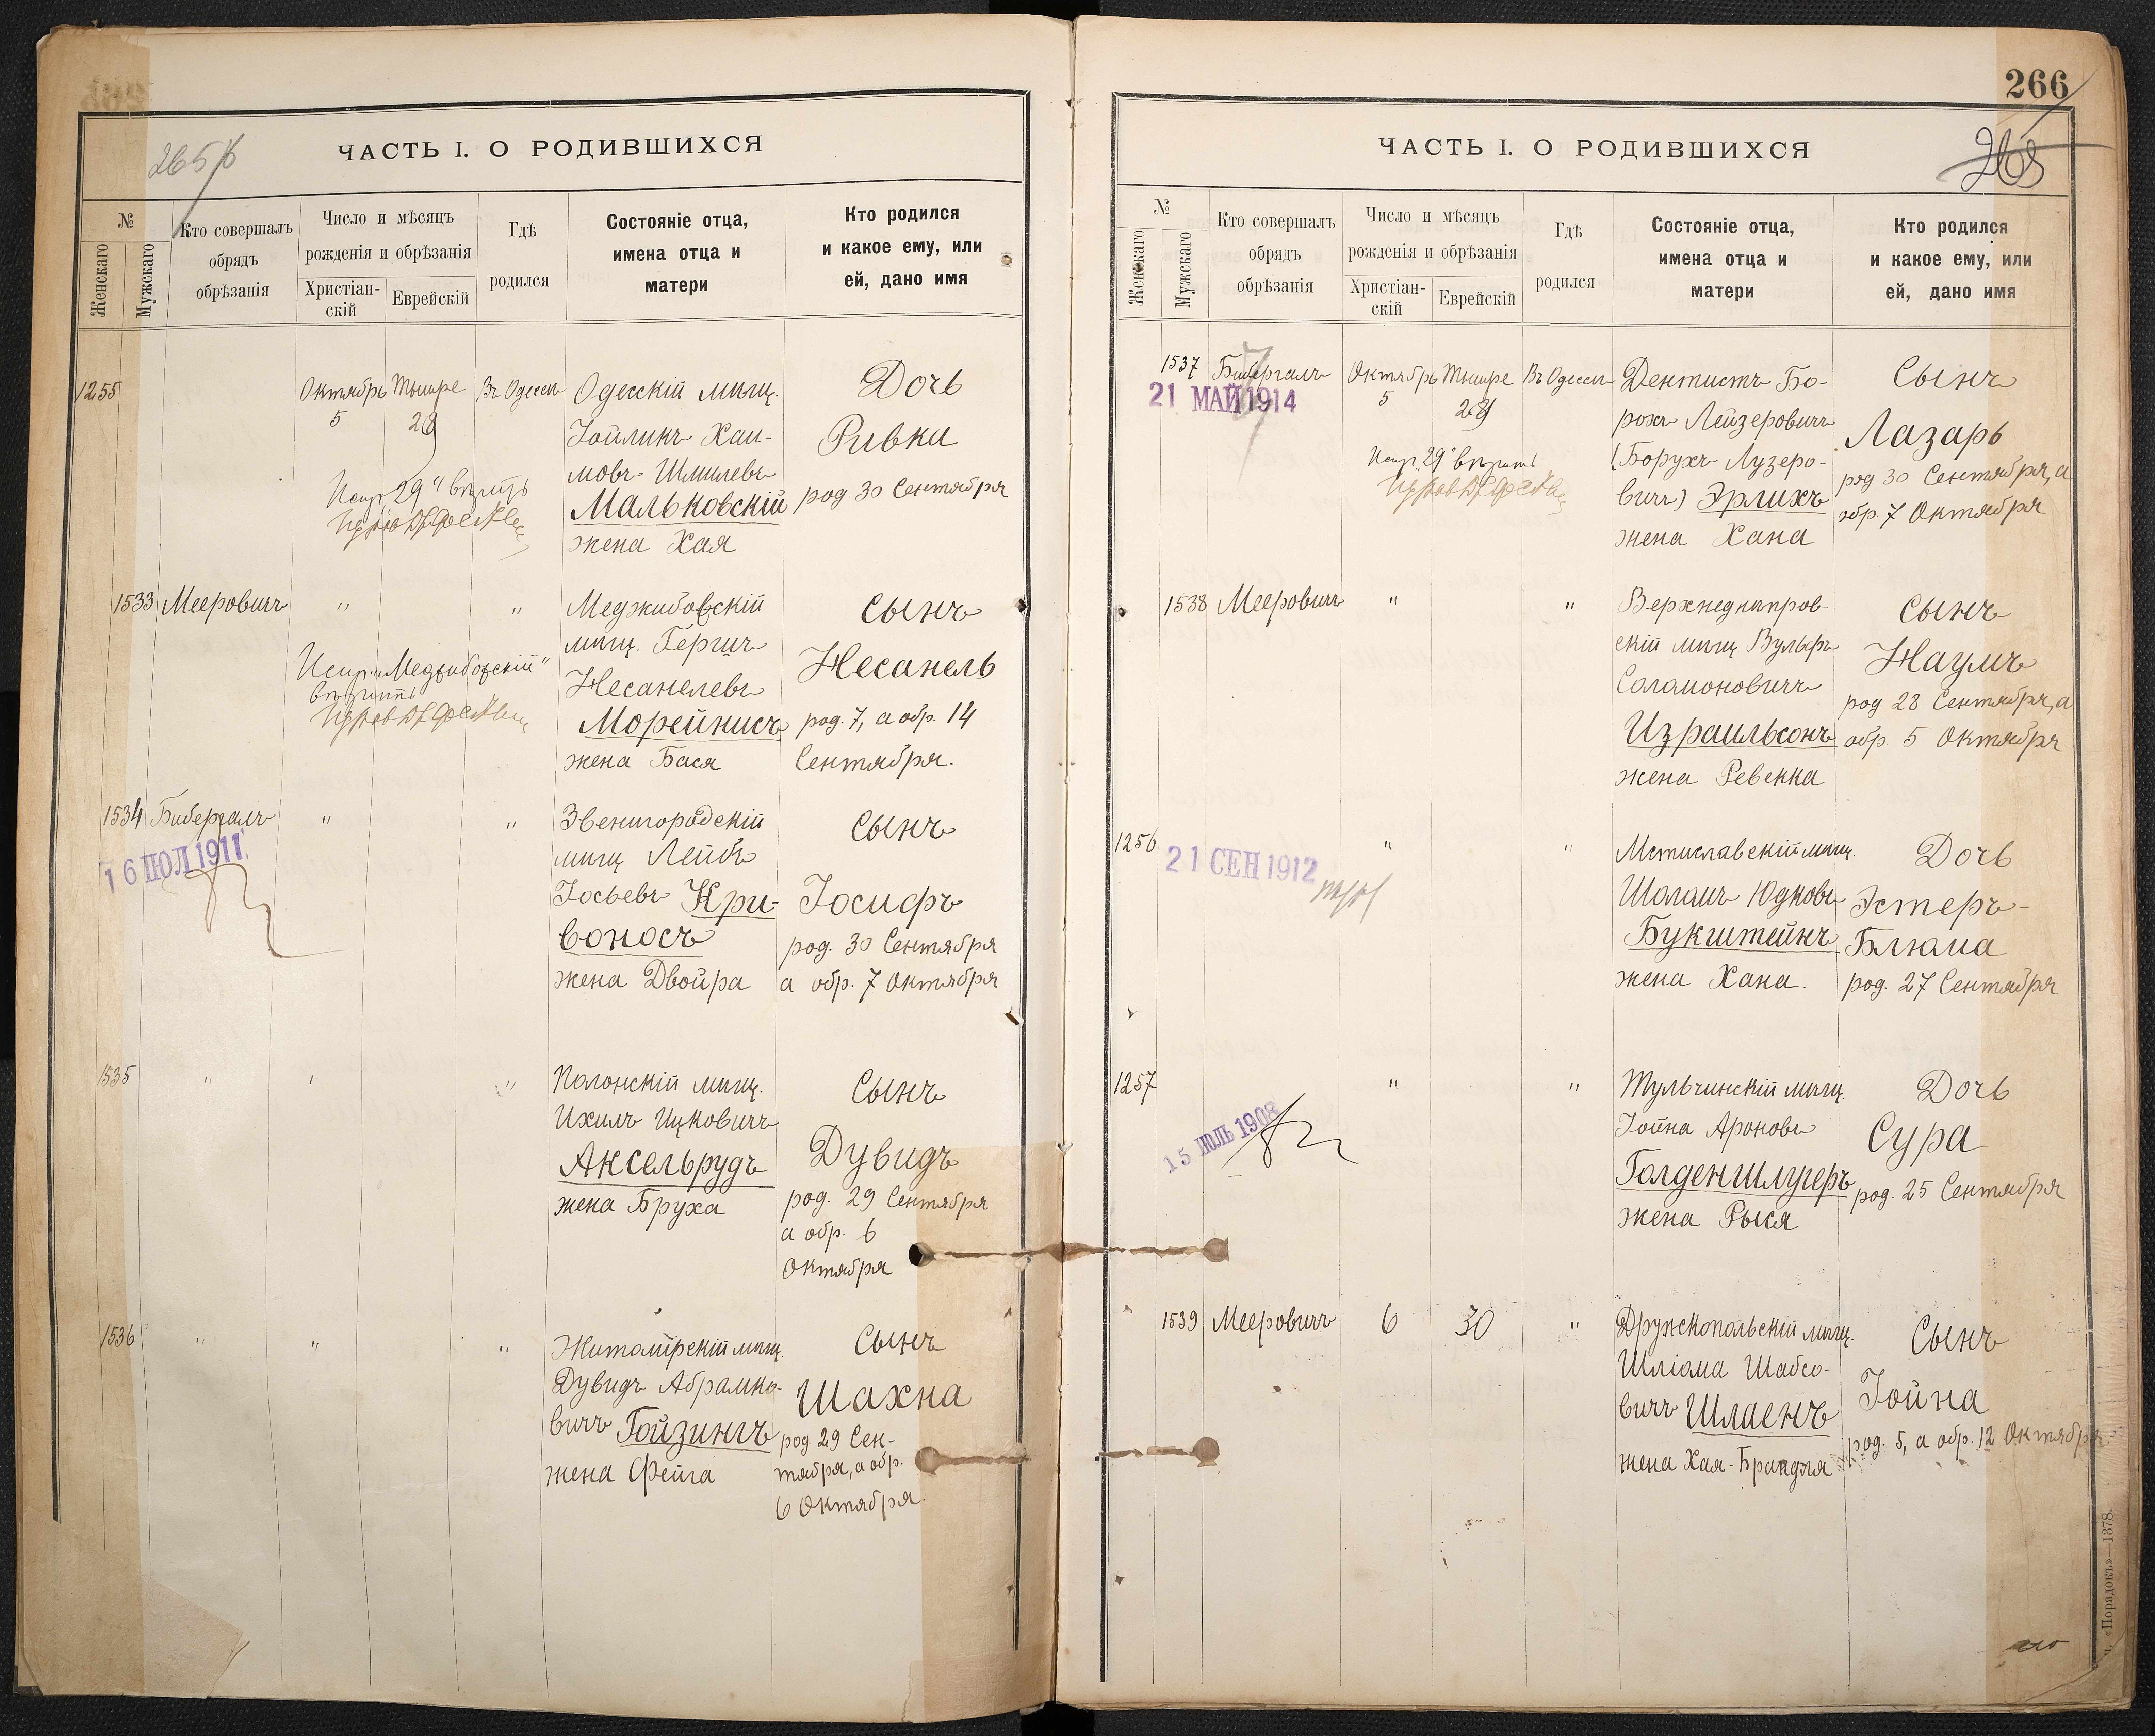 265
ЧАСТЬ I. О РОДИВШИХСЯ
№
Женскаго
Мужскаго
Кто совершалъ
обрядъ
обрѣзанія
Число и мѣсяцъ
рожденія и обрѣзанія
Христіан-
скій
Еврейскій
Гдѣ
родился
Состояніе отца,
имена отца и
матери
Кто родился
и какое ему, или
ей, дано имя
1255
Октябрь
5
Тышре
29
Въ Одессѣ
Одесскій мѣщ.
Іойликъ Хаи-
мовъ Шмилевъ
Мальковскій
жена Хая
Дочь
Ривка
род 30 Сентября
Испр. „29" вѣрить
1533 Мееровичъ " "
Меджибожскій
мѣщ. Гершъ
Несанелевъ
Морейнисъ
жена Бася
Сынъ
Несанель
род. 7, а обр. 14
Сентября.
Испр. „Меджибожскій"
вѣрить
1534 Бибергалъ " "
16 ІЮЛ 1911
Звенигородскій
мѣщ Лейбъ
Іосьевъ Кри-
воносъ
жена Двойра
Сынъ
Іосифъ
род. 30 Сентября
а обр. 7 Октября
1535 " " "
Полонскій мѣщ.
Ихилъ Ицковичъ
Аксельрудъ
жена Бруха
Сынъ
Дувидъ
род. 29 Сентября
а обр. 6
Октября
1536 " " "
Житомірскій мѣщ.
Дувидъ Абрамко-
вичъ Гойзингъ
жена Фейга
Сынъ
Шахна
род 29 Сен-
тября, а обр.
6 Октября
266
ЧАСТЬ I. О РОДИВШИХСЯ
№
Женскаго
Мужскаго
Кто совершалъ
обрядъ
обрѣзанія
Число и мѣсяцъ
рожденія и обрѣзанія
Христіан-
скій
Еврейскій
Гдѣ
родился
Состояніе отца,
имена отца и
матери
Кто родился
и какое ему, или
ей, дано имя
1537 Бибергалъ
21 МАЙ 1914
Октябрь
5
Тышре
29
Въ Одессѣ
Дентистъ Бо-
рохъ Лейзеровичъ
(Борухъ Лузеро-
вичъ) Эрлихъ
жена Хана
Сынъ
Лазарь
род 30 Сентября, а
обр. 7 Октября
Испр. „29" вѣрить
1538 Мееровичъ " "
Верхнеднѣпров-
скій мѣщ Вульфъ
Соломоновичъ
Израильсонъ
жена Ревекка
Сынъ
Наумъ
род 28 Сентября, а
обр. 5 Октября
1256 " "
21 СЕН 1912
Мстиславскій мѣщ.
Шоломъ Юдковъ
Букштейнъ
жена Хана.
Дочь
Эстеръ-
Блюма
род. 27 Сентября
1257 " "
15 ІЮЛЬ 1908
Тульчинскій мѣщ.
Іойна Ароновъ
Голденшлугеръ
жена Рыся
Дочь
Сура
род. 25 Сентября
1539 Мееровичъ 6 30 "
Дружкопольскій мѣщ.
Шліома Шабсо-
вичъ Шлаенъ
жена Хая-Брандля
Сынъ
Іойна
род. 5, а обр. 12 Октября
«Порядокъ»—1378.